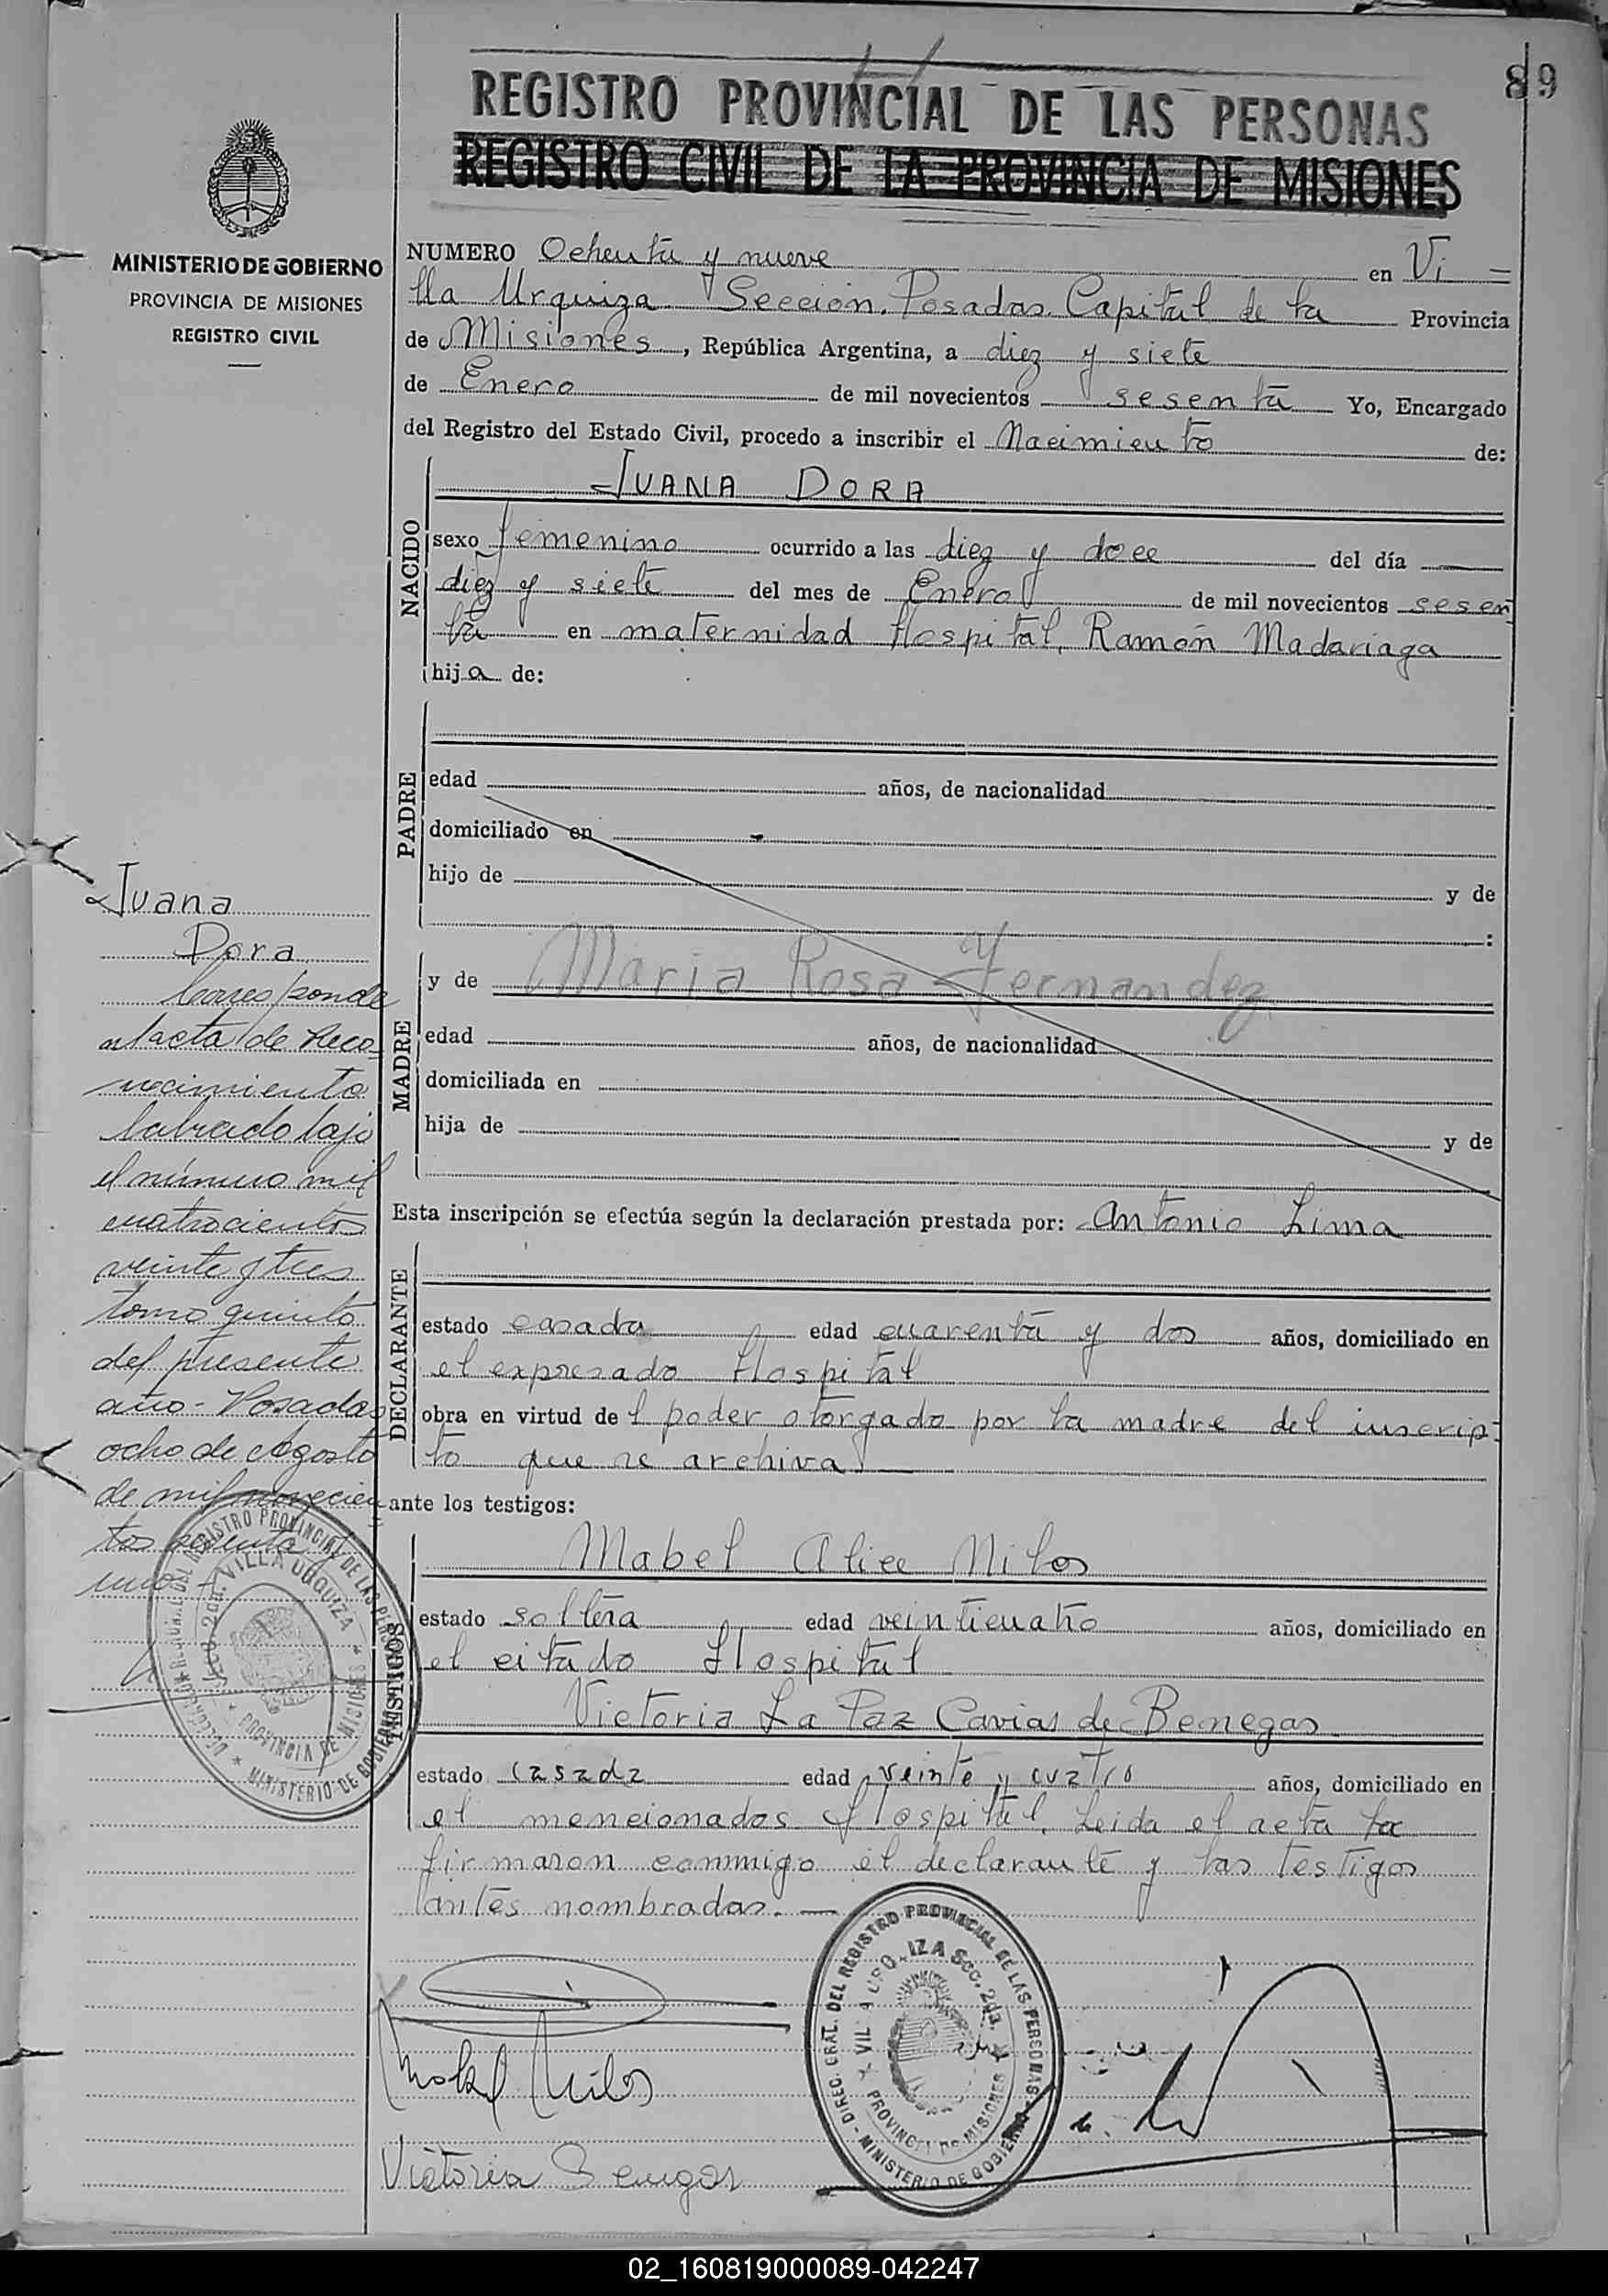 89
REGISTRO PROVINCIAL DE LAS PERSONAS
REGISTRO CIVIL DE LA PROVINCIA DE MISIONES
MINISTERIO DE GOBIERNO
PROVINCIA DE MISIONES
REGISTRO CIVIL
NUMERO Ochenta y nueve en Vi =
lla Urquiza Sección, Posadas, Capital de la Provincia
de Misiones, República Argentina, a diez y siete
de Enero de mil novecientos sesenta Yo, Encargado
del Registro del Estado Civil, procedo a inscribir el Nacimiento de:
JUANA DORA
NACIDO
sexo femenino ocurrido a las diez y doce del día
diez y siete del mes de Enero de mil novecientos sesen
ta en maternidad Hospital, Ramón Madariaga
hija de:
PADRE
edad años, de nacionalidad
domiciliado en
hijo de y de
:
MADRE
y de Maria Rosa Fernandez
edad años, de nacionalidad
domiciliada en
hija de y de
Esta inscripción se efectúa según la declaración prestada por: Antonio Lima
DECLARANTE
estado casado edad cuarenta y dos años, domiciliado en
el expresado Hospital
obra en virtud del poder otorgado por la madre del inscrip=
to que se archiva
ante los testigos:
TESTIGOS
Mabel Alice Milos
estado soltera edad veinticuatro años, domiciliado en
el citado Hospital
Victoria La Paz Cavias de Benegas
estado casada edad veinte y cuatro años, domiciliado en
el mencionados Hospital. Leida el acta la
firmaron conmigo el declarante y las testigos
antes nombradas. —
Juana
Dora
Corresponde
al acta de Reco-
nocimiento
labrado bajo
el número mil
cuatrocientos
veinte y tres
tomo quinto
del presente
año - Posadas
ocho de Agosto
de mil novecien
tos sesenta y
uno
DIRECCION GRAL. DEL REGISTRO PROVINCIAL DE LAS PERSONAS
Sec. 2da. VILLA URQUIZA
* PROVINCIA DE MISIONES *
* MINISTERIO DE GOBIERNO
Mabel Milos
Victoria Benegas
DIREC. GRAL. DEL REGISTRO PROVINCIAL DE LAS PERSONAS
VILLA URQUIZA Sec. 2da.
PROVINCIA DE MISIONES
- MINISTERIO DE GOBIERNO -
02_160819000089-042247